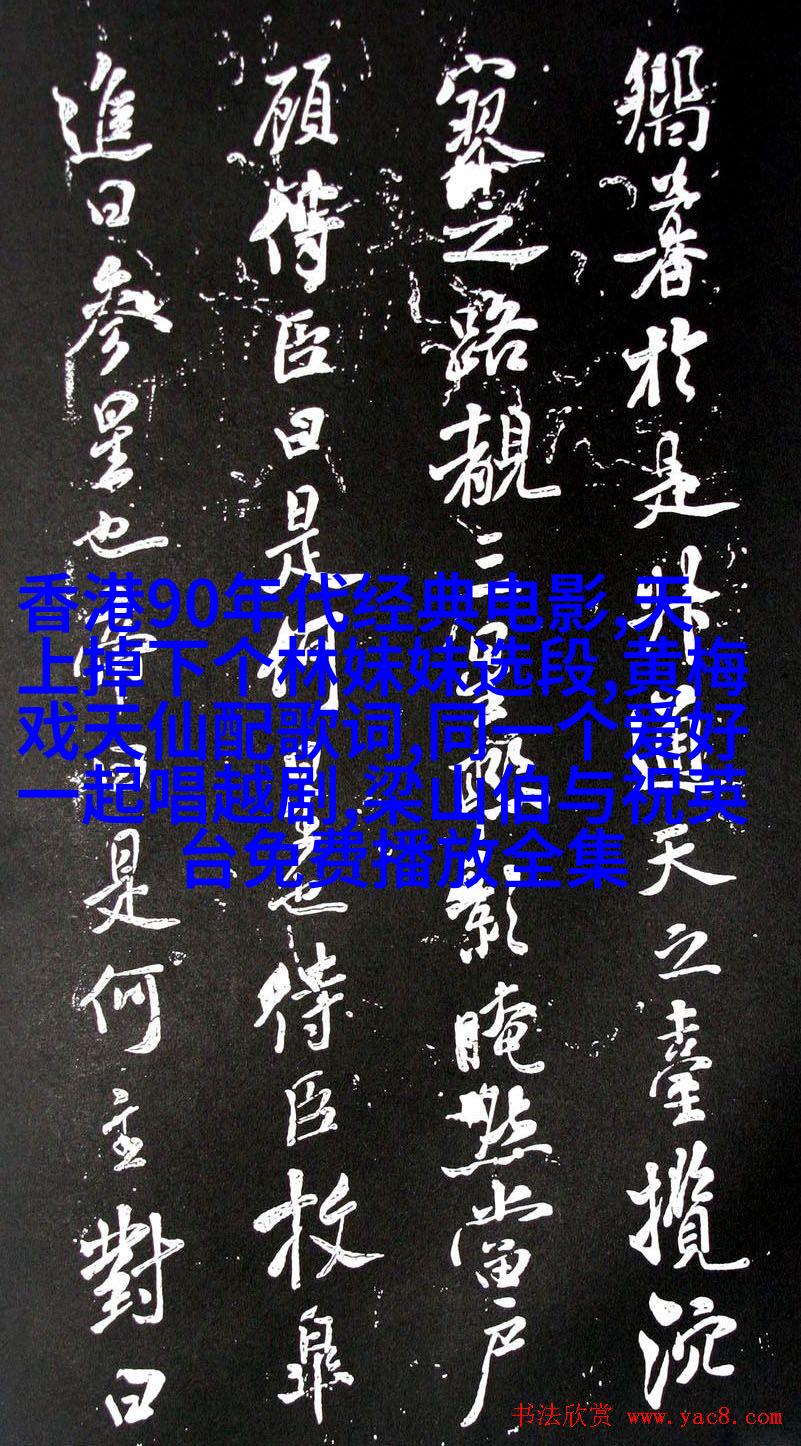 著於是天之臺攬
寥之路三影晻然當戶
顧侍臣曰是何也侍臣枚皐
進曰參星也是何主對曰
香港90年代经典电影,天
上掉下个林妹妹选段,黄梅
戏天仙配歌词,同一个爱好
一起唱越剧,梁山伯与祝英
台免费播放全集
书法欣赏 www.yac8.com